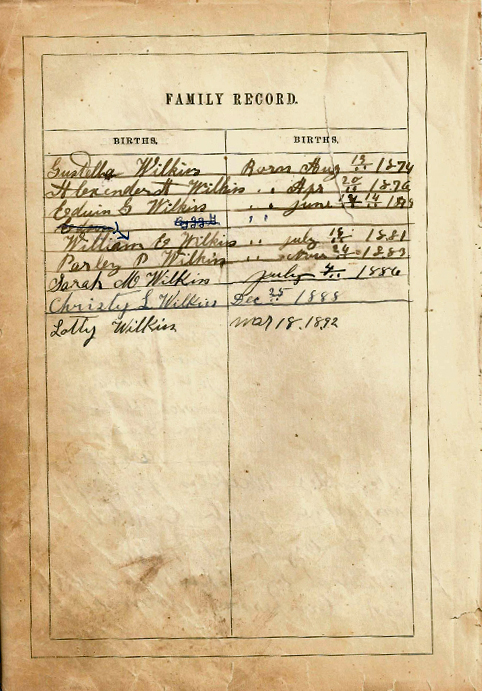 FAMILY RECORD.
BIRTHS. BIRTHS.
Gustella Wilkins Born Aug 13 1874
Alexander A Wilkins " Apr 20 1876
Edwin G Wilkins " June 14 18
William E Wilkins " July 18 1881
Parley P Wilkins " Nov 24 1883
Sarah M Wilkins July 4 1886
Christy L Wilkins Dec 25 1888
Lotty Wilkins Mar 18. 1892